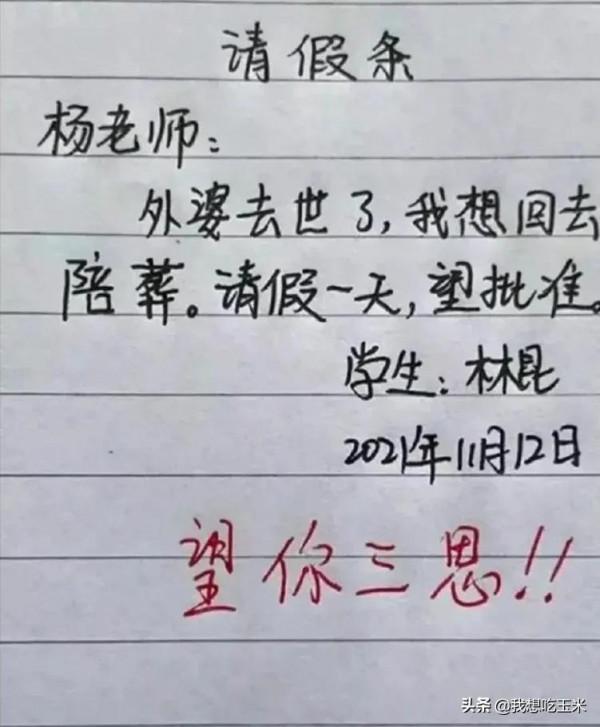 请假条
杨老师：
外婆去世了，我想回去
陪葬。请假一天，望批准。
学生：林昆
2021年11月12日
望你三思!!
头条 @我想吃玉米